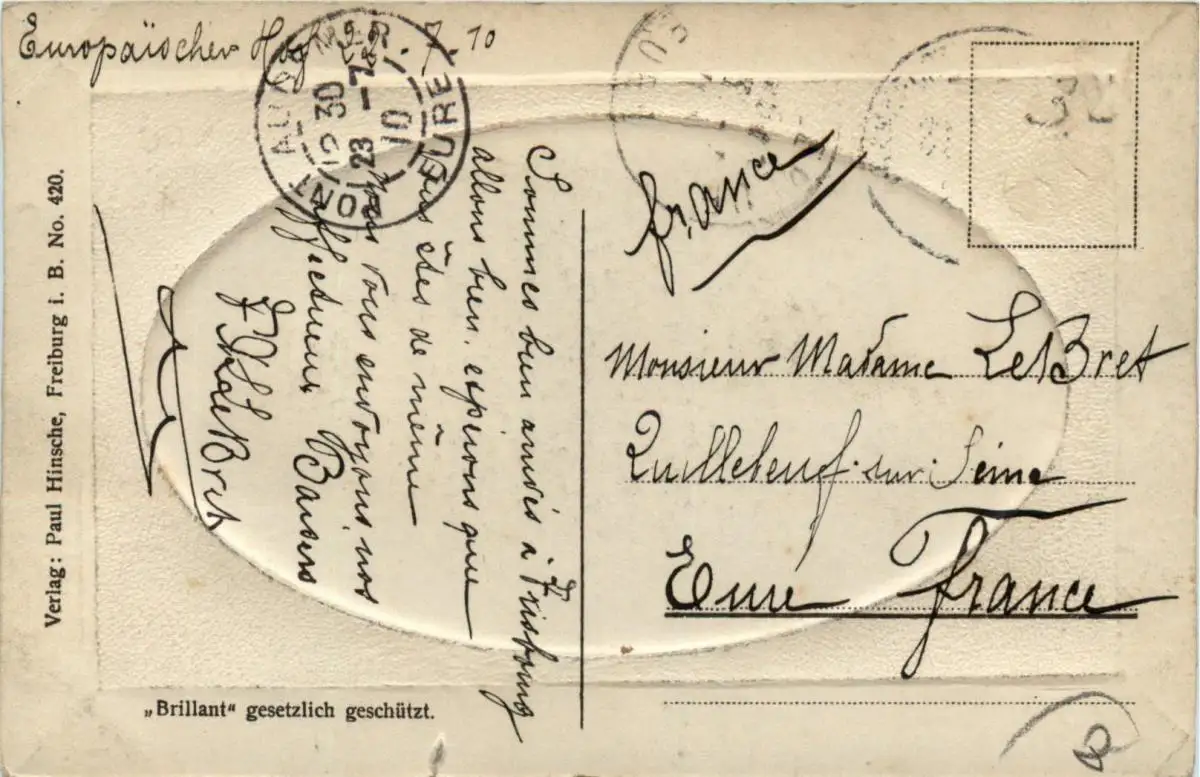 Europäischer Hof 22. 7. 10
PONT AUDEMER
12 30
23 - 7
10
EURE
france
Sommes bien arrivés à Fribourg
allons bien. espérons que
vous êtes de même
Nous vous envoyons nos
affectueux Baisers
LeBret
Monsieur Madame LeBret
Quillebeuf. sur. Seine
Eure France
Verlag: Paul Hinsche, Freiburg i. B. No. 420.
„Brillant“ gesetzlich geschützt.
8